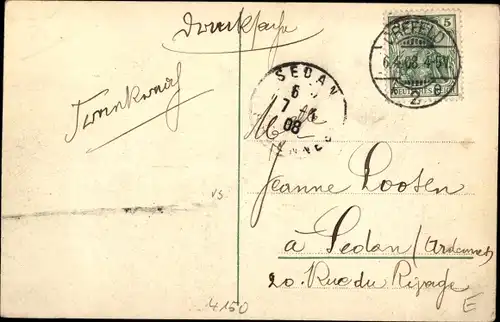 Drucksache
5
CREFELD
6.4.08.4-5N.
* 2 e
DEUTSCHES REICH
SEDAN
6
7 4
08
Mlle
Jeanne Looten
à Sedan (Ardennes)
20. Rue du Rivage
vs
4150
E